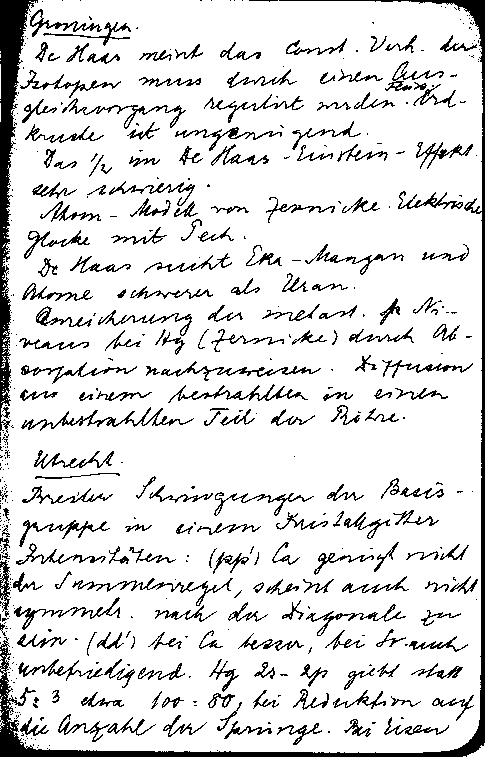 Groningen.
De Haas meint das Const. Verh. der
Isotopen muss durch einen Aus-
gleichsvorgang regulirt werden. Erd-
kruste ist ungenügend.
Das 1/2 im De Haas-Einstein-Effekt
sehr schwierig.
Atom-Modell von Zernicke. Elektrische
Glocke mit Pech.
De Haas sucht Eka-Mangan und
Atome schwerer als Uran.
Anreicherung der metast. p Ni-
veaus bei Hg (Zernicke) durch Ab-
sorption nachzuweisen. Diffusion
aus einem bestrahlten in einen
unbestrahlten Teil der Röhre.
Utrecht.
Schwingungen der Basis-
gruppe in einem Kristallgitter
Intensitäten: (pp') Ca genügt nicht
der Summenregel, scheint auch nicht
symmetr. nach der Diagonale zu
sein. (dd') bei Ca besser, bei Sr auch
unbefriedigend. Hg 2s-2p giebt statt
5:3 etwa 100:80, bei Reduktion auf
die Anzahl der Sprünge. Bei Eisen